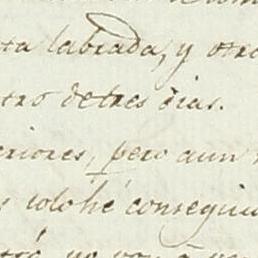 labrada, y otro
tro de tres dias.
eriores, pero aun
solo hé consegui
no voy à